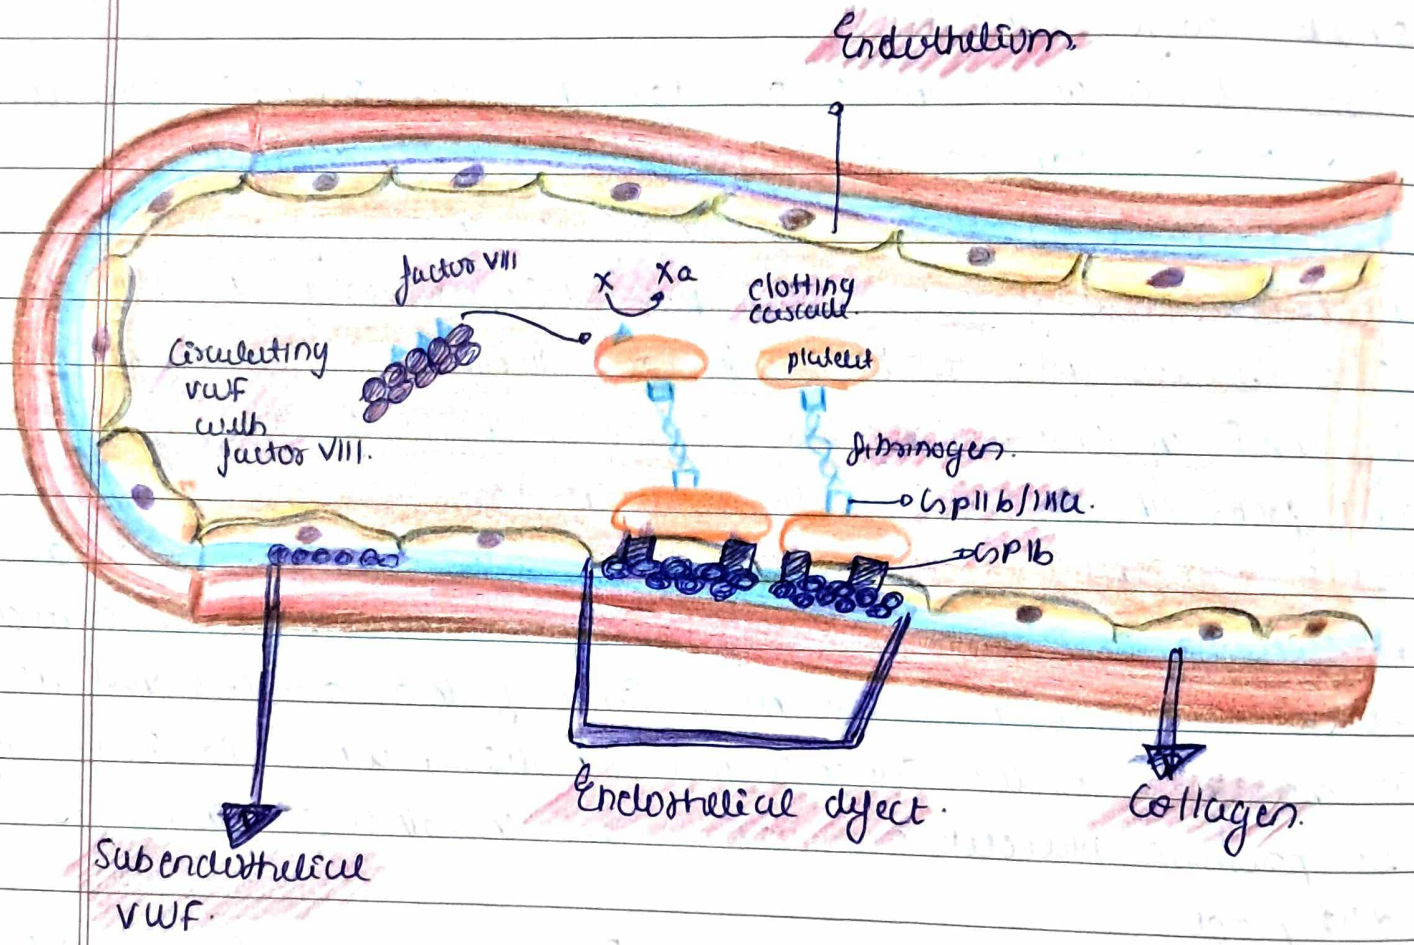 Endothelium.
factor VIII
X
Xa
clotting
cascade.
Circulating
VWF
with
factor VIII.
platelet
fibrinogen.
GpIIb/IIIa.
GPIb
Endothelial defect.
Collagen.
Subendothelial
VWF.